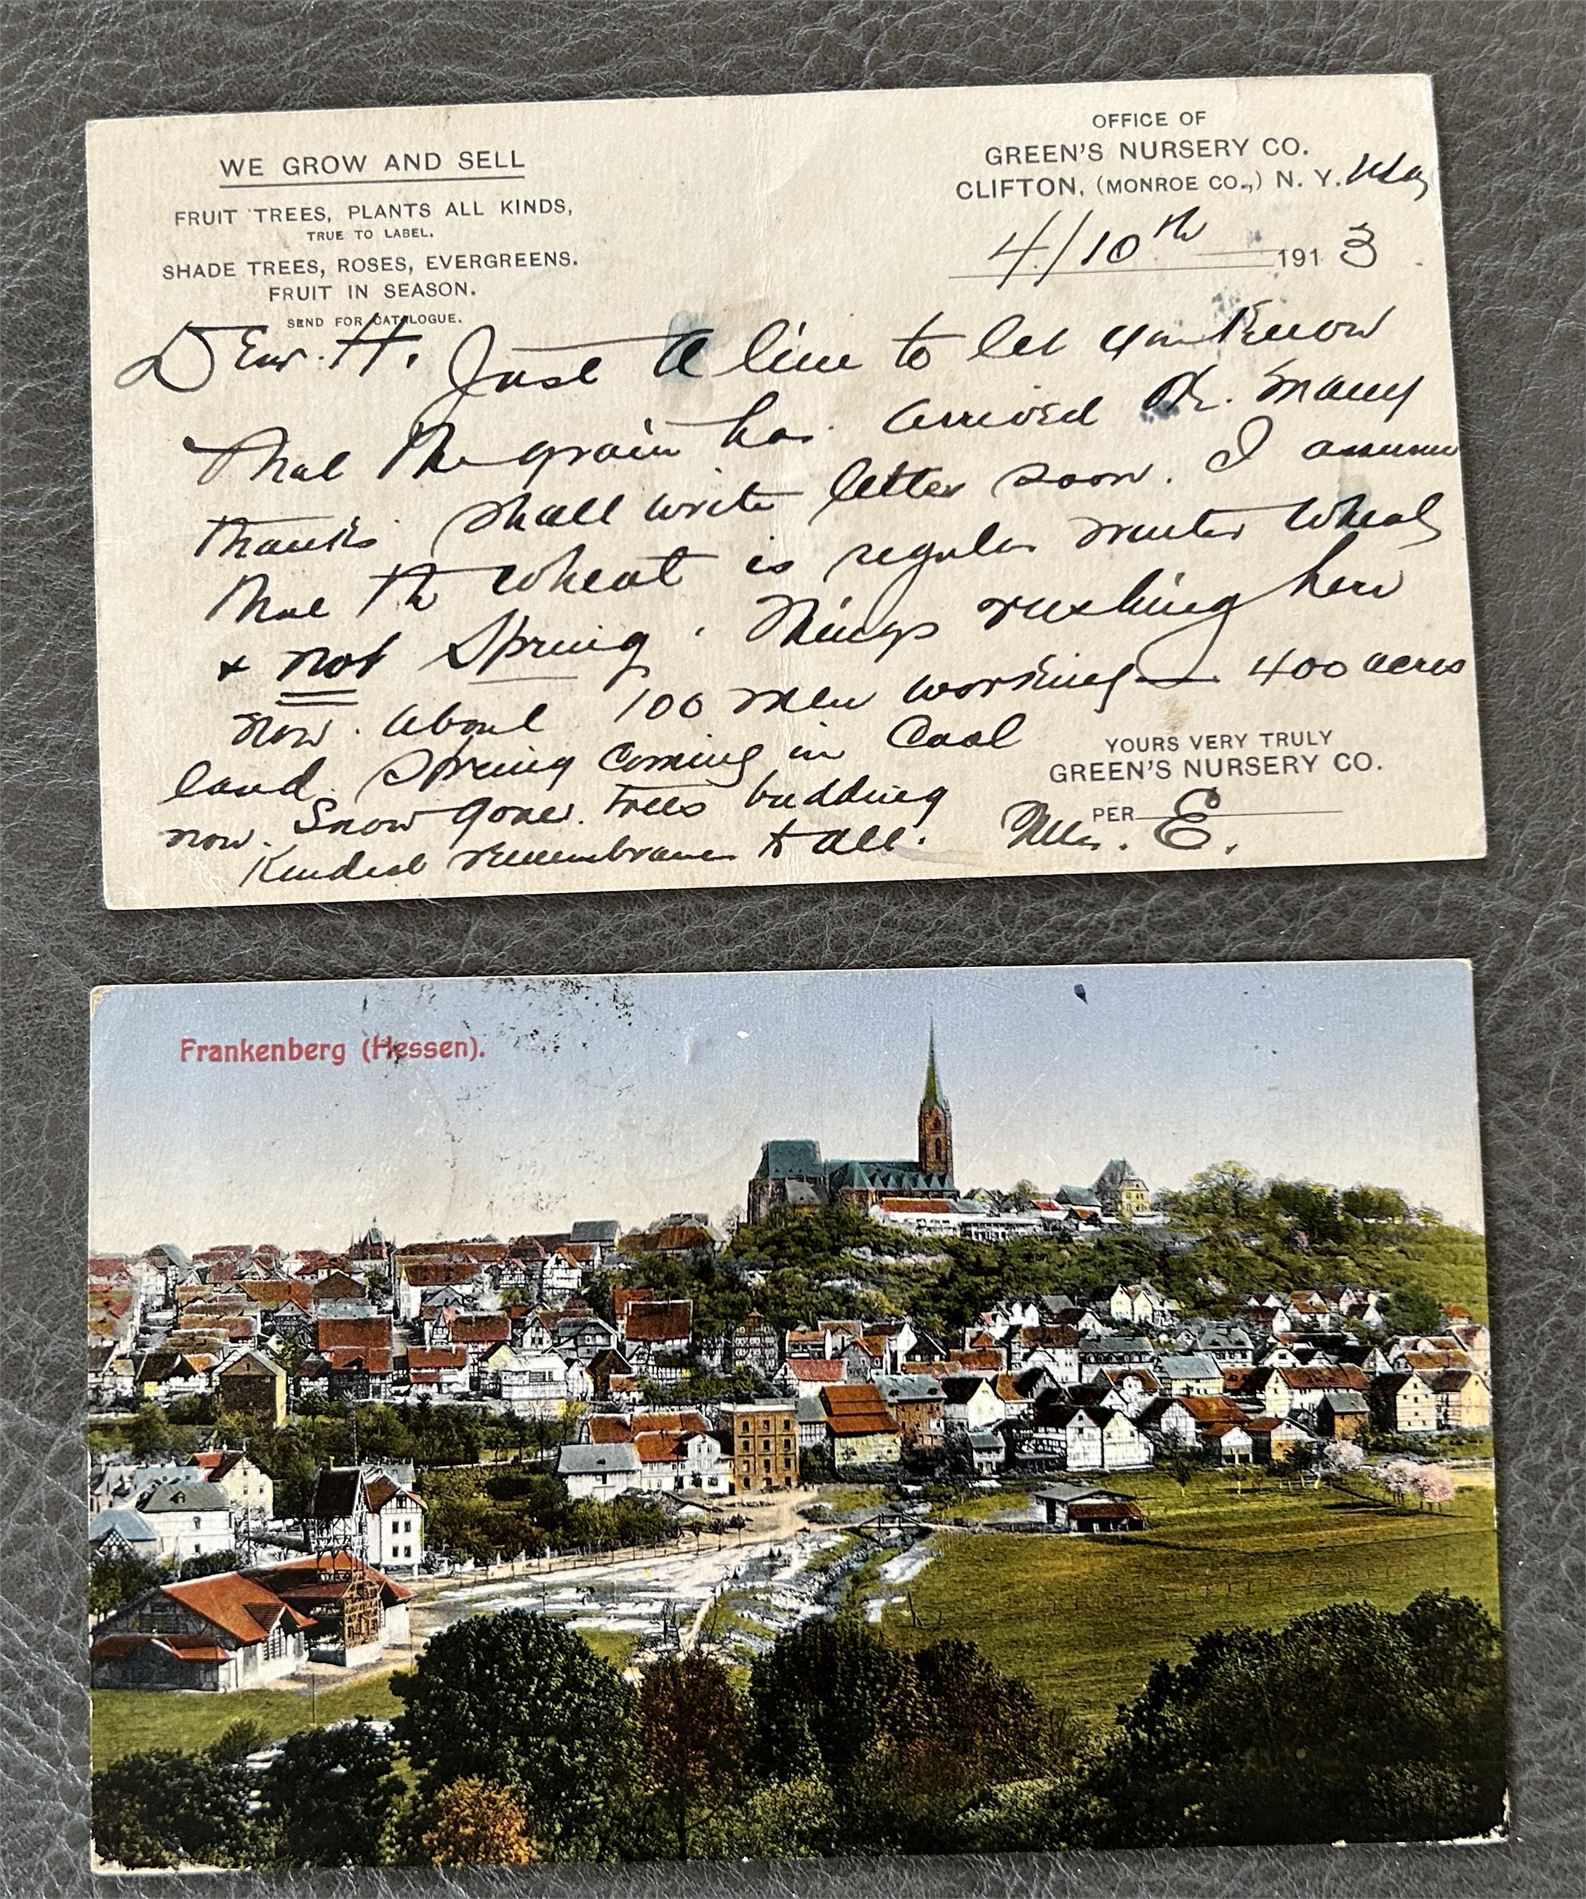 WE GROW AND SELL
FRUIT TREES, PLANTS ALL KINDS,
TRUE TO LABEL.
SHADE TREES, ROSES, EVERGREENS.
FRUIT IN SEASON.
SEND FOR CATALOGUE.
OFFICE OF
GREEN'S NURSERY CO.
CLIFTON, (MONROE CO.,) N. Y. USA
4/10th 1913
Dear H. Just a line to let you know
that the grain has arrived OK. Many
thanks shall write letter soon. I assume
that the wheat is regular winter wheat
& not Spring. Things rushing here
now. About 100 men working 400 acres
land. Spring coming in Cool
now. Snow gone. Trees budding
Kindest remembrances to all.
YOURS VERY TRULY
GREEN'S NURSERY CO.
PER E.
Frankenberg (Hessen).